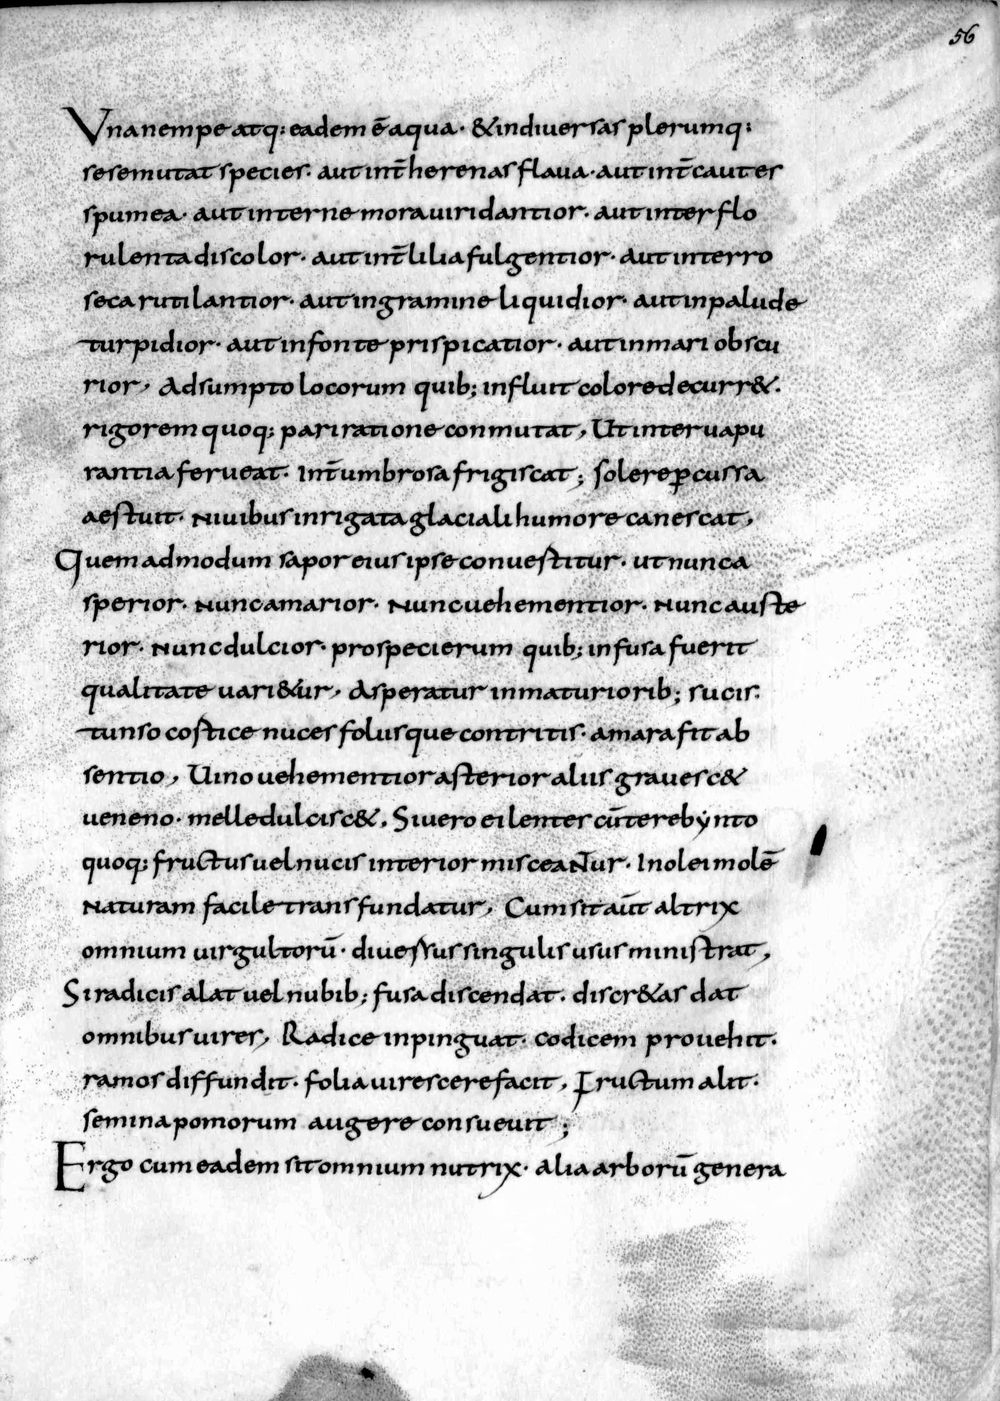 56
Vna nempe atq; eadem ē aqua · & in diuersas plerumq;
sese mutat species · aut int̄ herenas flaua · aut int̄ cautes
spumea · aut interne mora uiridantior · aut inter flo
rulenta discolor · aut int̄ lilia fulgentior · aut inter ro
seca rutilantior · aut in gramine liquidior · aut in palude
turpidior · aut in fonte prispicatior · aut in mari obscu
rior, Adsumpto locorum quib; influit colore decurr& ·
rigorem quoq; pari ratione conmutat, Ut inter uapu
rantia ferueat · Int̄ umbrosa frigiscat ; sole rep̱cussa
aestuit · Niuibus inrigata glaciali humore canescat,
Quemadmodum sapor eius ipse conuestitur · ut nunc a
sperior · Nunc amarior · Nunc uehementior · Nunc auste
rior · Nunc dulcior · pro specierum quib; infusa fuerit
qualitate uari&ur, Asperatur inmaturiorib; sucis ·
tunso costice nuces folusque contritis · amara fit ab
sentio, Uino uehementior asterior aliis grauesc&
ueneno · melle dulcisc&, Si uero ei lenter cū terebynto
quoq; fructus uel nucis interior misceaNtur · In olei molē
Naturam facile transfundatur, Cum sit aūt altrix
omnium uirgultorū · diuessus singulis usus ministrat,
Si radicis alat uel nubib; fusa discendat · discr&as dat
omnibus uires, Radice inpinguat · codicem prouehit ·
ramos diffundit · folia uirescere facit, Fructum alit ·
semina pomorum augere consueuit ;
Ergo cum eadem sit omnium nutrix · alia arborū genera